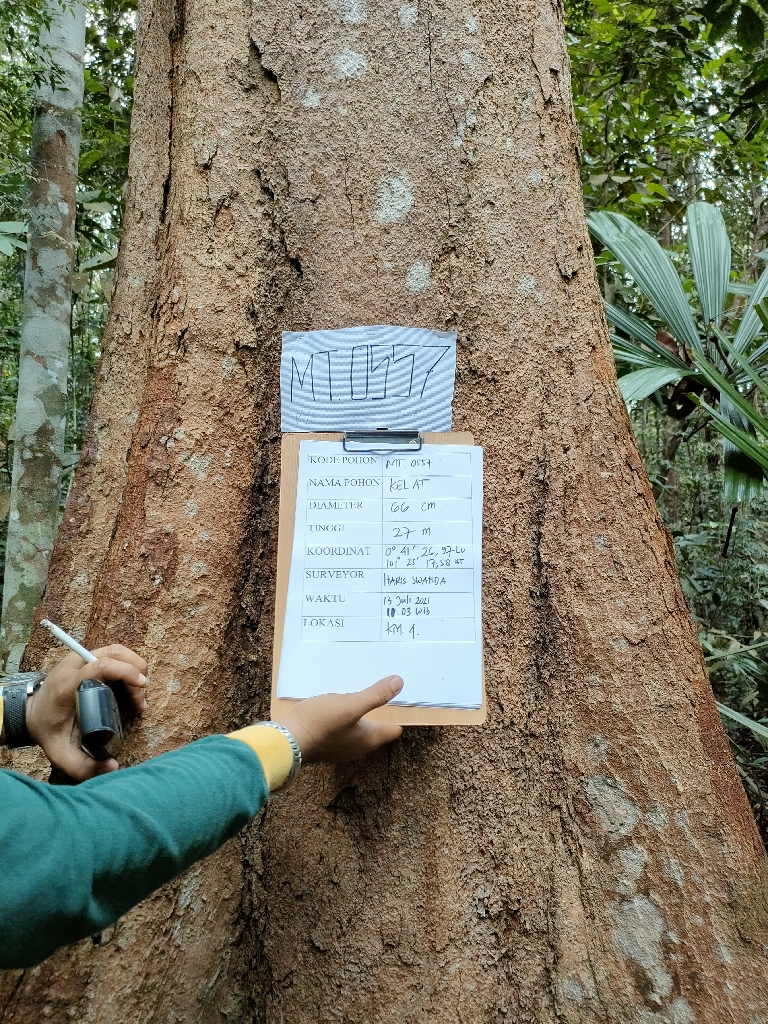 MT.0557
KODE POHON MT 0557
NAMA POHON KELAT
DIAMETER 66 cm
TINGGI 27 m
KOORDINAT 0° 41' 26,97-LU
101° 25' 17,58 BT
SURVEYOR HARIS SWANDA
WAKTU 13 Juli 2021
11.03 WIB
LOKASI KM 4.